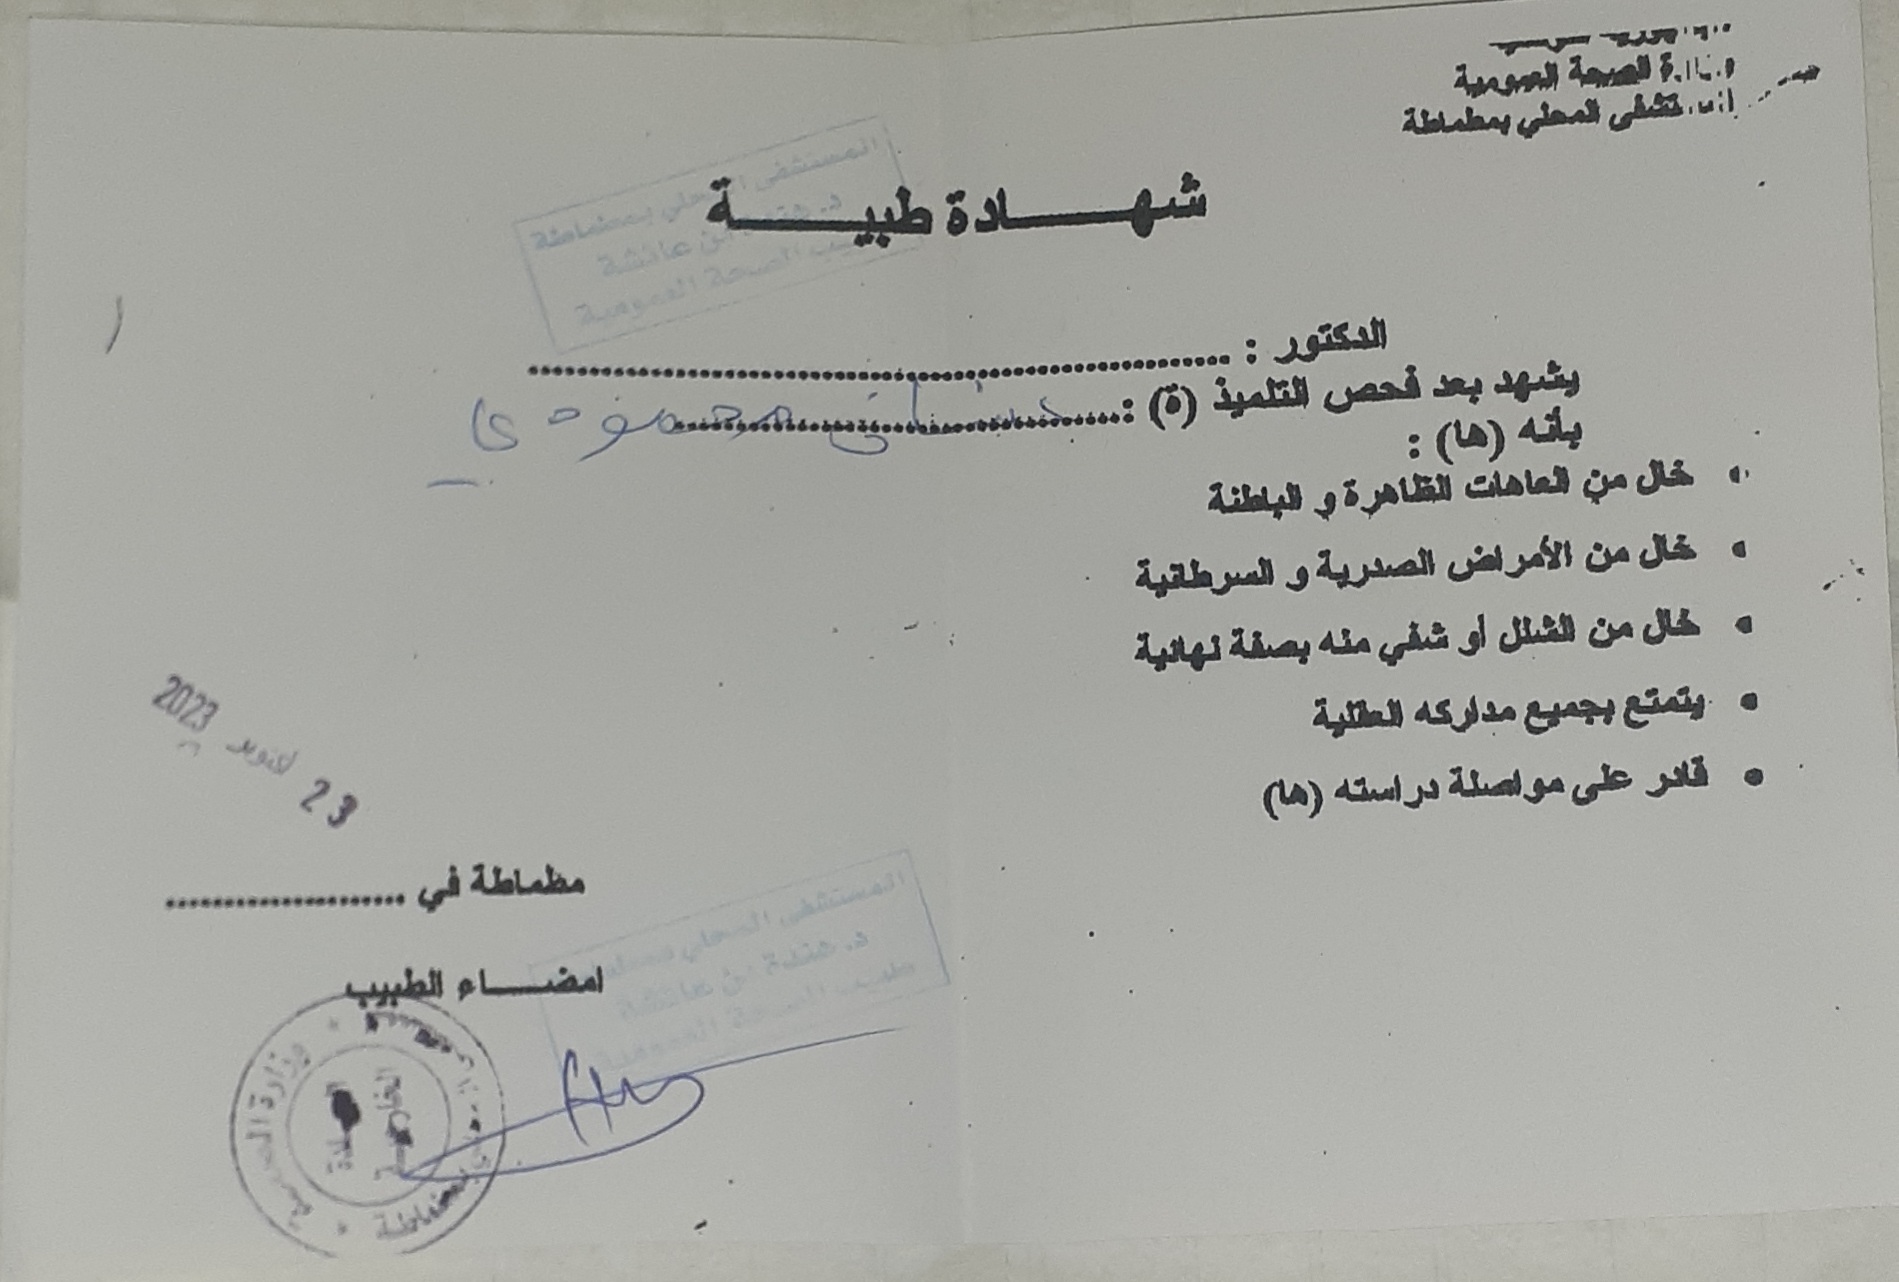 الصحة العمومية
المحلي بمطماطة
شهـــــادة طبيـــــة
المستشفى المحلي بمطماطة
د. هندة ابن عائشة
طبيب الصحة العمومية
الدكتور : ..........................................................
يشهد بعد فحص التلميذ (ة) :..........................................
بأنه (ها) :
• خال من العاهات الظاهرة و الباطنة
• خال من الأمراض الصدرية و السرطانية
• خال من الشلل أو شفي منه بصفة نهائية
• يتمتع بجميع مداركه العقلية
• قادر على مواصلة دراسته (ها)
23 أكتوبر 2023
مطماطة في ......................
امضـــــاء الطبيب
المستشفى المحلي بمطماطة
د. هندة ابن عائشة
طبيب الصحة العمومية
وزارة الصحة